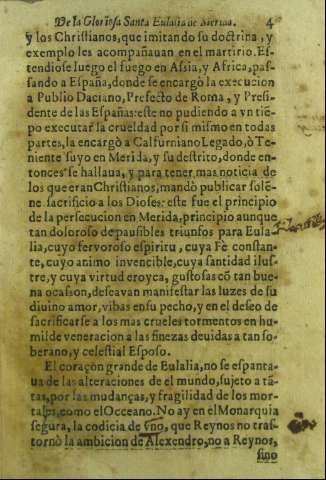 De la Gloriosa Santa Eulalia de Merida. 4
y los Christianos, que imitando su doctrina, y
exemplo les acompañauan en el martirio. Es-
tendiose luego el fuego en Assia, y Africa, pas-
sando a España, donde se encargò la execucion
a Publio Daciano, Prefecto de Roma, y Presi-
dente de las Españas: este no pudiendo a vn tie-
po executar la crueldad por si mismo en todas
partes, la encargò a Calfurniano Legado, ò Te-
niente suyo en Merida, y su destrito, donde en-
tonces se hallaua, y para tener mas noticia de
los que eran Christianos, mandò publicar solē-
ne sacrificio a los Dioses: este fue el principio
de la persecucion en Merida, principio aunque
tan doloroso de pausibles triunfos para Eula-
lia, cuyo fervoroso espiritu, cuya Fè constan-
te, cuyo animo invencible, cuya santidad ilus-
tre, y cuya virtud eroyca, gustosas cō tan bue-
na ocasion, deseavan manifestar las luzes de su
diuino amor, vibas en su pecho, y en el deseo de
sacrificarse a los mas crueles tormentos en hu-
milde veneracion a las finezas deuidas a tan so-
berano, y celestial Esposo.
El coraçon grande de Eulalia, no se espanta-
ua de las alteraciones de el mundo, sujeto a tā-
tas, por las mudanças, y fragilidad de los mor-
tales, como el Occeano. No ay en el Monarquia
segura, la codicia de vno, que Reynos no tras-
tornò la ambicion de Alexendro, no a Reynos,
sino